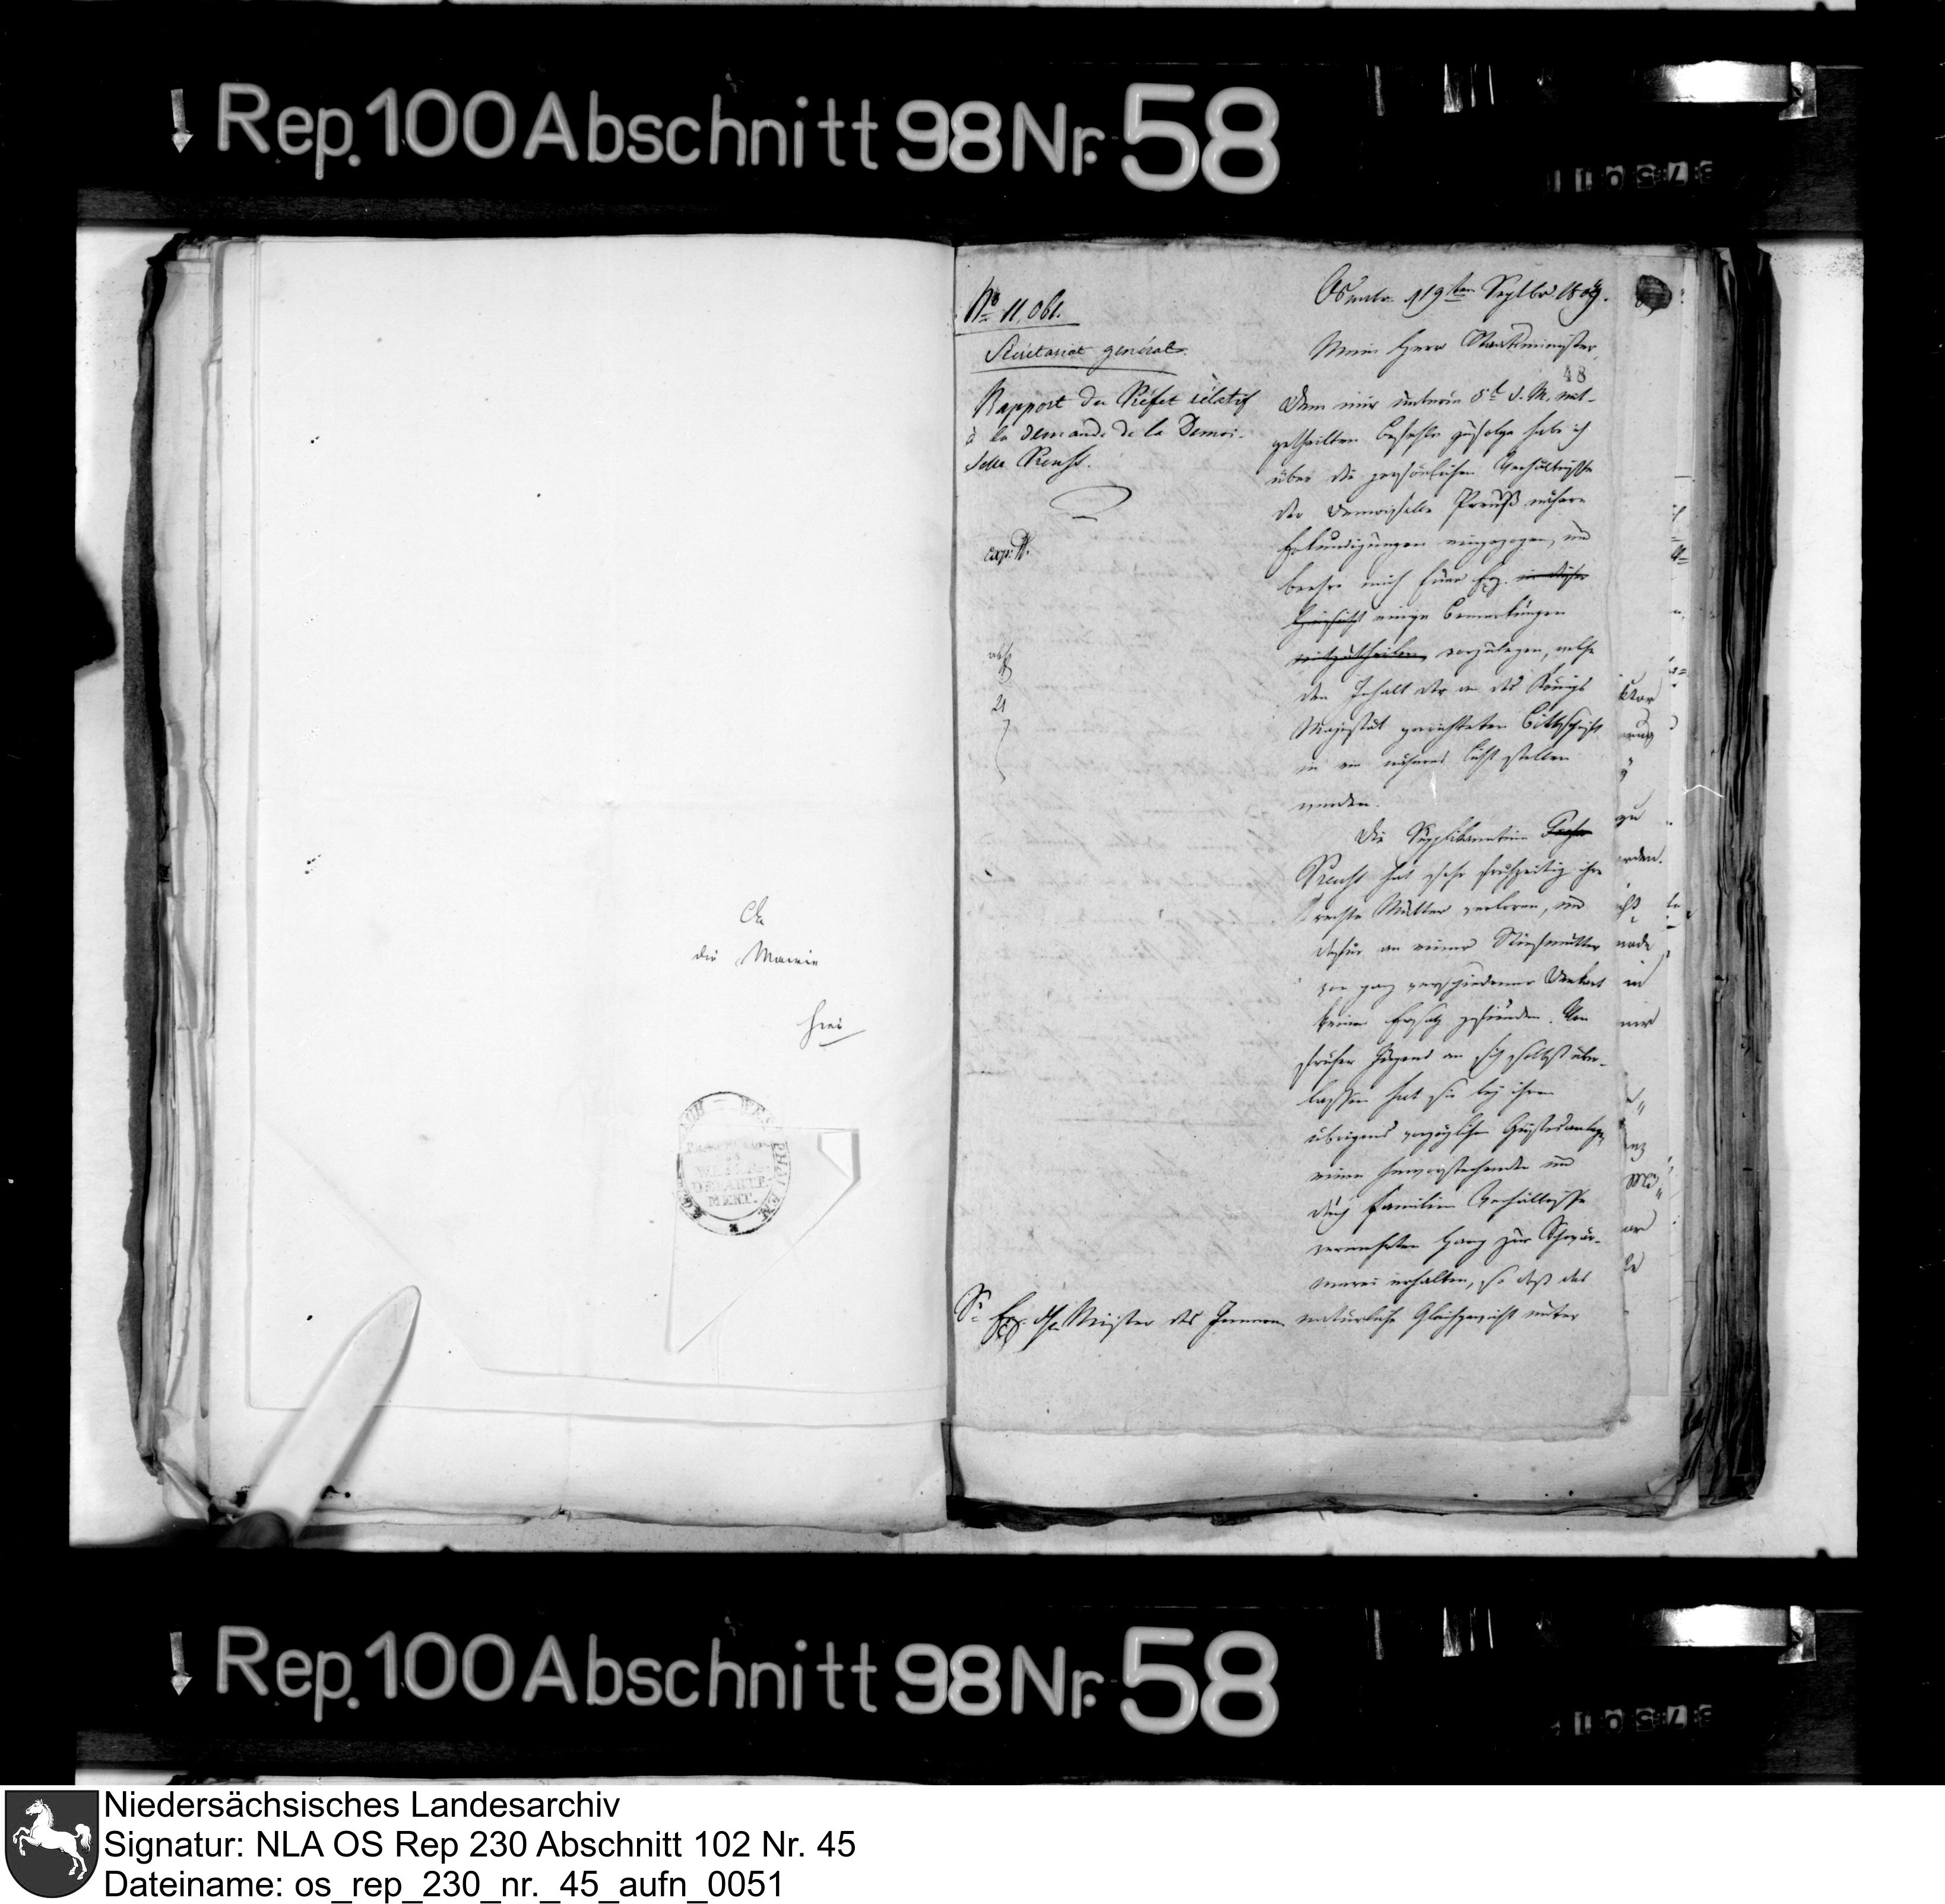 Rep. 100 Abschnitt 98 Nr. 58
An
die Mairie
hier
KÖNIGREICH — WESTPHALEN
WESER
DEPARTE
MENT.
No 11,061.
Secretariat général.
Rapport du Préfet rélatif
à la demande de la Demoi-
selle Preuss.
exp.
Osnabr. d 19ten Septbr. 1809.
Mein Herr Staatsminister,
48
Dem mir unterm 5t d. M. mit-
getheilten Befehle zufolge habe ich
über die persönlichen Verhältnisse
der Demoiselle Preuß nähere
Erkundigungen eingezogen, und
beehre mich Euer Exz. in dieser
Hinsicht einige Bemerkungen
mitzutheilen, vorzulegen, welche
den Inhalt der an des Königs
Majestät gerichteten Bittschrift
in ein näheres Licht stellen
werden.
Die Supplikantin
Preuss hat sehr fruhzeitig ihre
rechte Mutter verloren, und
dafür an einer Stiefmutter
von ganz verschiedener Denkart
keinen Ersatz gefunden. Von
früher Jugend an sich selbst über-
lassen hat sie bey ihren
übrigens vorzüglichen Geistesanlagen
einen hervorstechenden und
durch Familien Verhältnisse
vermehrten Hang zur Schwär-
merei erhalten, so daß das
natürliche Gleichgewicht unter
Sr Exz. dh. Minister des Inneren
Rep. 100 Abschnitt 98 Nr. 58
Niedersächsisches Landesarchiv
Signatur: NLA OS Rep 230 Abschnitt 102 Nr. 45
Dateiname: os_rep_230_nr._45_aufn_0051